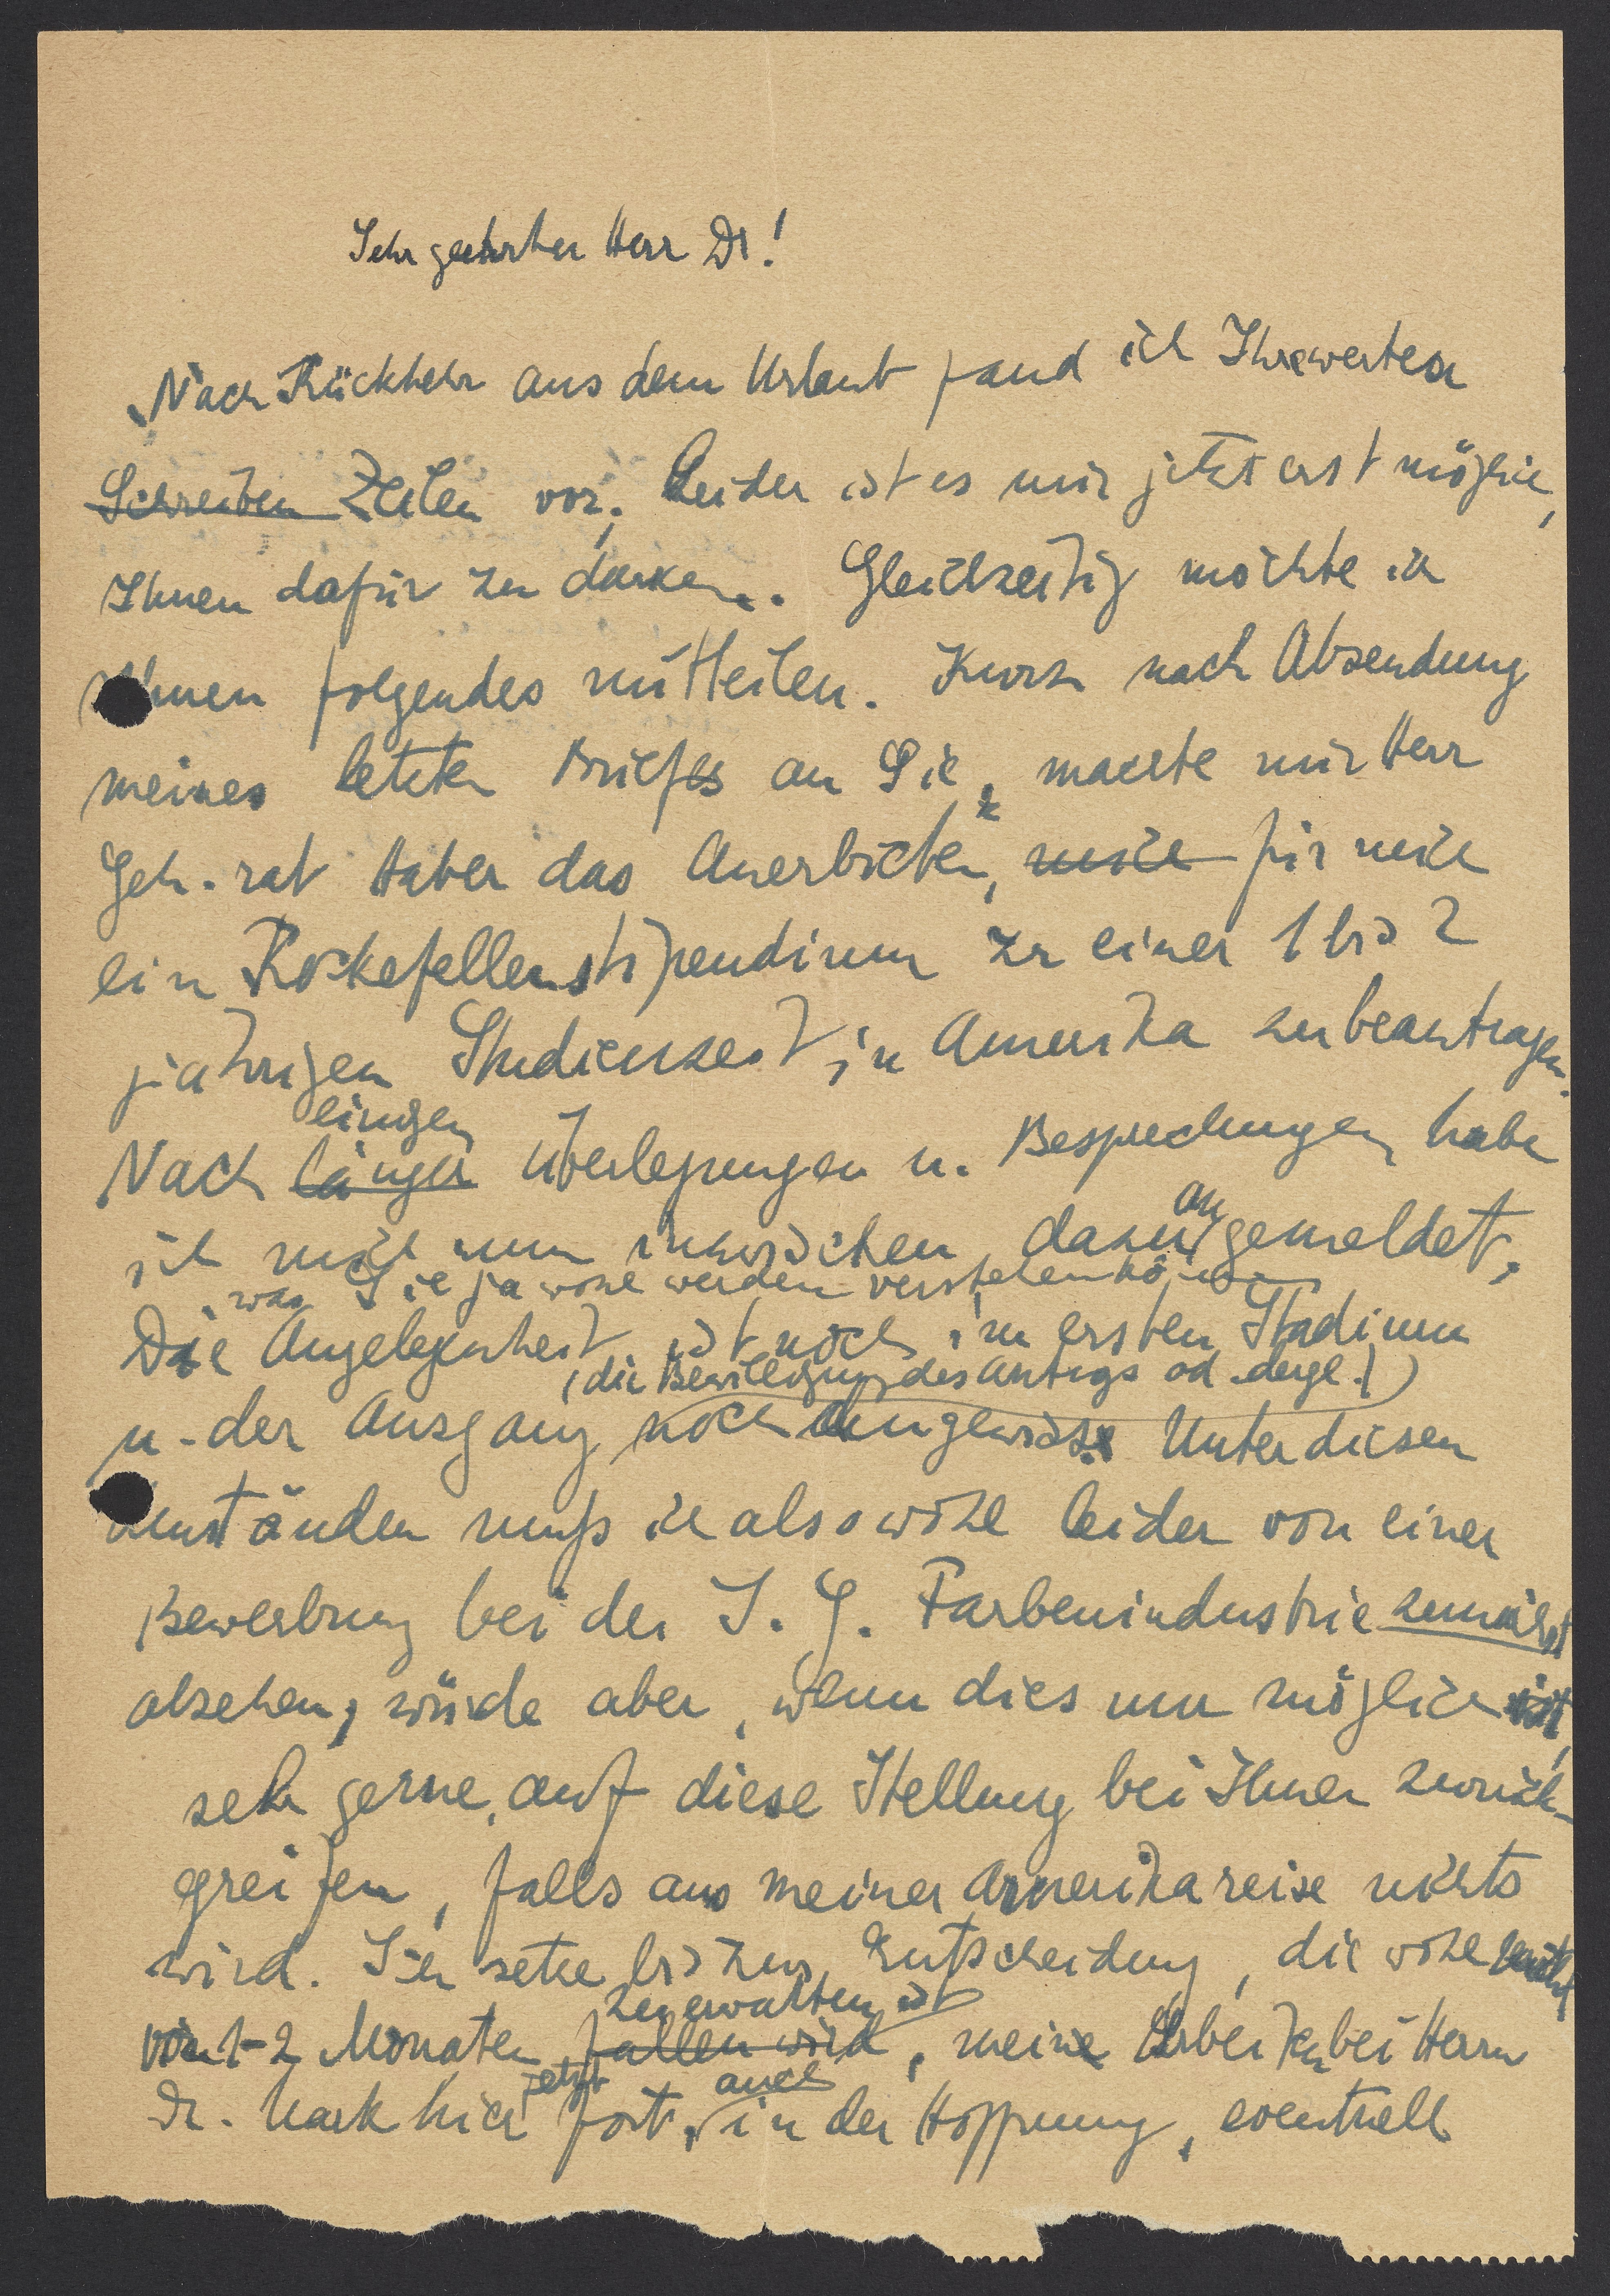 Sehr geehrter Herr Dr!
Nach Rückkehr aus dem Urlaub fand ich Ihre werten
Schreiben Zeilen vor; Leider ist es mir jetzt erst möglich,
Ihnen dafür zu danken. Gleichzeitig möchte ich
Ihnen folgendes mitteilen. Kurz nach Absendung
meines letzten Briefes an Sie, machte mir Herr
Geh.-rat Haber das Anerbieten, mich für mich
ein Rockefellerstipendium zu einer 1 bis 2
jährigen Studienzeit in Amerika zu beantragen.
einigen
Nach länger Überlegungen u. Besprechungen habe
an
ich mich nun inzwischen dazu gemeldet,
was Sie ja wohl werden verstehen können
Die Angelegenheit ist noch im ersten Stadium
(die Bewilligung des Antrags od. dergl.)
u. der Ausgang noch ungewiss. Unter diesen
Umständen muß ich also wohl leider von einer
Bewerbung bei der I. G. Farbenindustrie zunächst
absehen, würde aber, wenn dies nun möglich ist,
sehr gerne, auf diese Stellung bei Ihnen zurück-
greifen, falls aus meiner Amerikareise nichts
wird. Ich setze bis zur Entscheidung, die wohl
zu erwarten ist
1-2 Monaten fallen wird, meine Arbeiten bei Herrn
jetzt auch
Dr. Mark hier fort, in der Hoffnung, eventuell